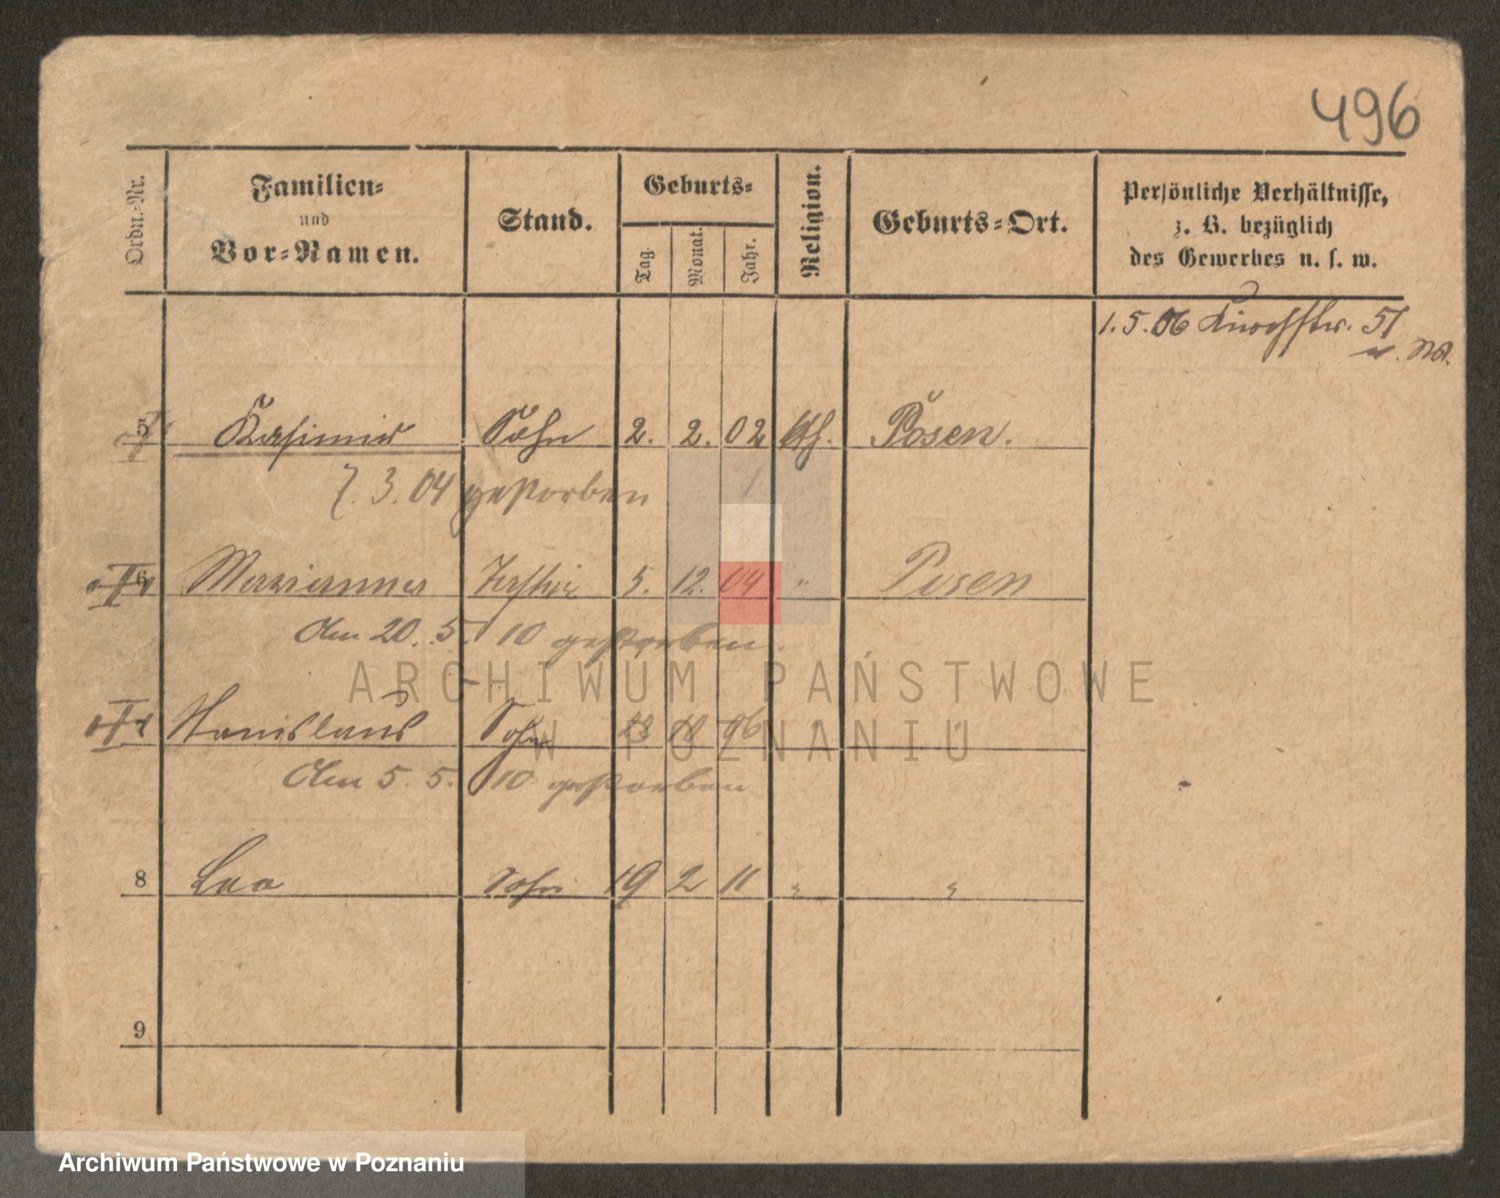 496
Ordn.-Nr.
Familien-
und
Vor-Namen.
Stand.
Geburts-
Tag.
Monat.
Jahr.
Religion.
Geburts-Ort.
Persönliche Verhältnisse,
z. B. bezüglich
des Gewerbes u. s. w.
1. 5. 06 Kirchstr. 51
5 Kasimir Sohn 2. 2. 02 kth. Posen.
7. 3. 04 gestorben
6 Marianna 5. 12. 04 " Posen
Am 20. 5. 10 gestorben.
ARCHIWUM PAŃSTWOWE
Stanislaus Sohn 18 96
W POZNANIU
Am 5. 5. 10 gestorben
8 Leo Sohn 19 2 11 " "
9
Archiwum Państwowe w Poznaniu